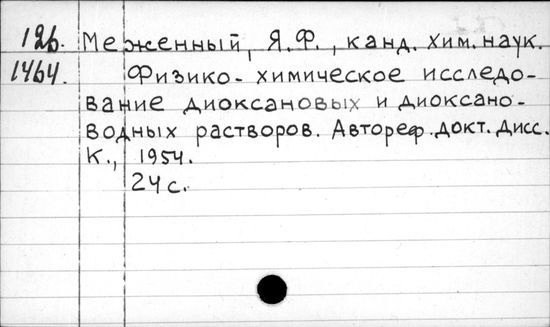 126. Меженный, Я.Ф., канд. хим. наук.
1464. Физико-химическое исследо-
вание диоксановых и диоксано-
водных растворов. Автореф. докт. дисс.
К., 1954.
24 с.